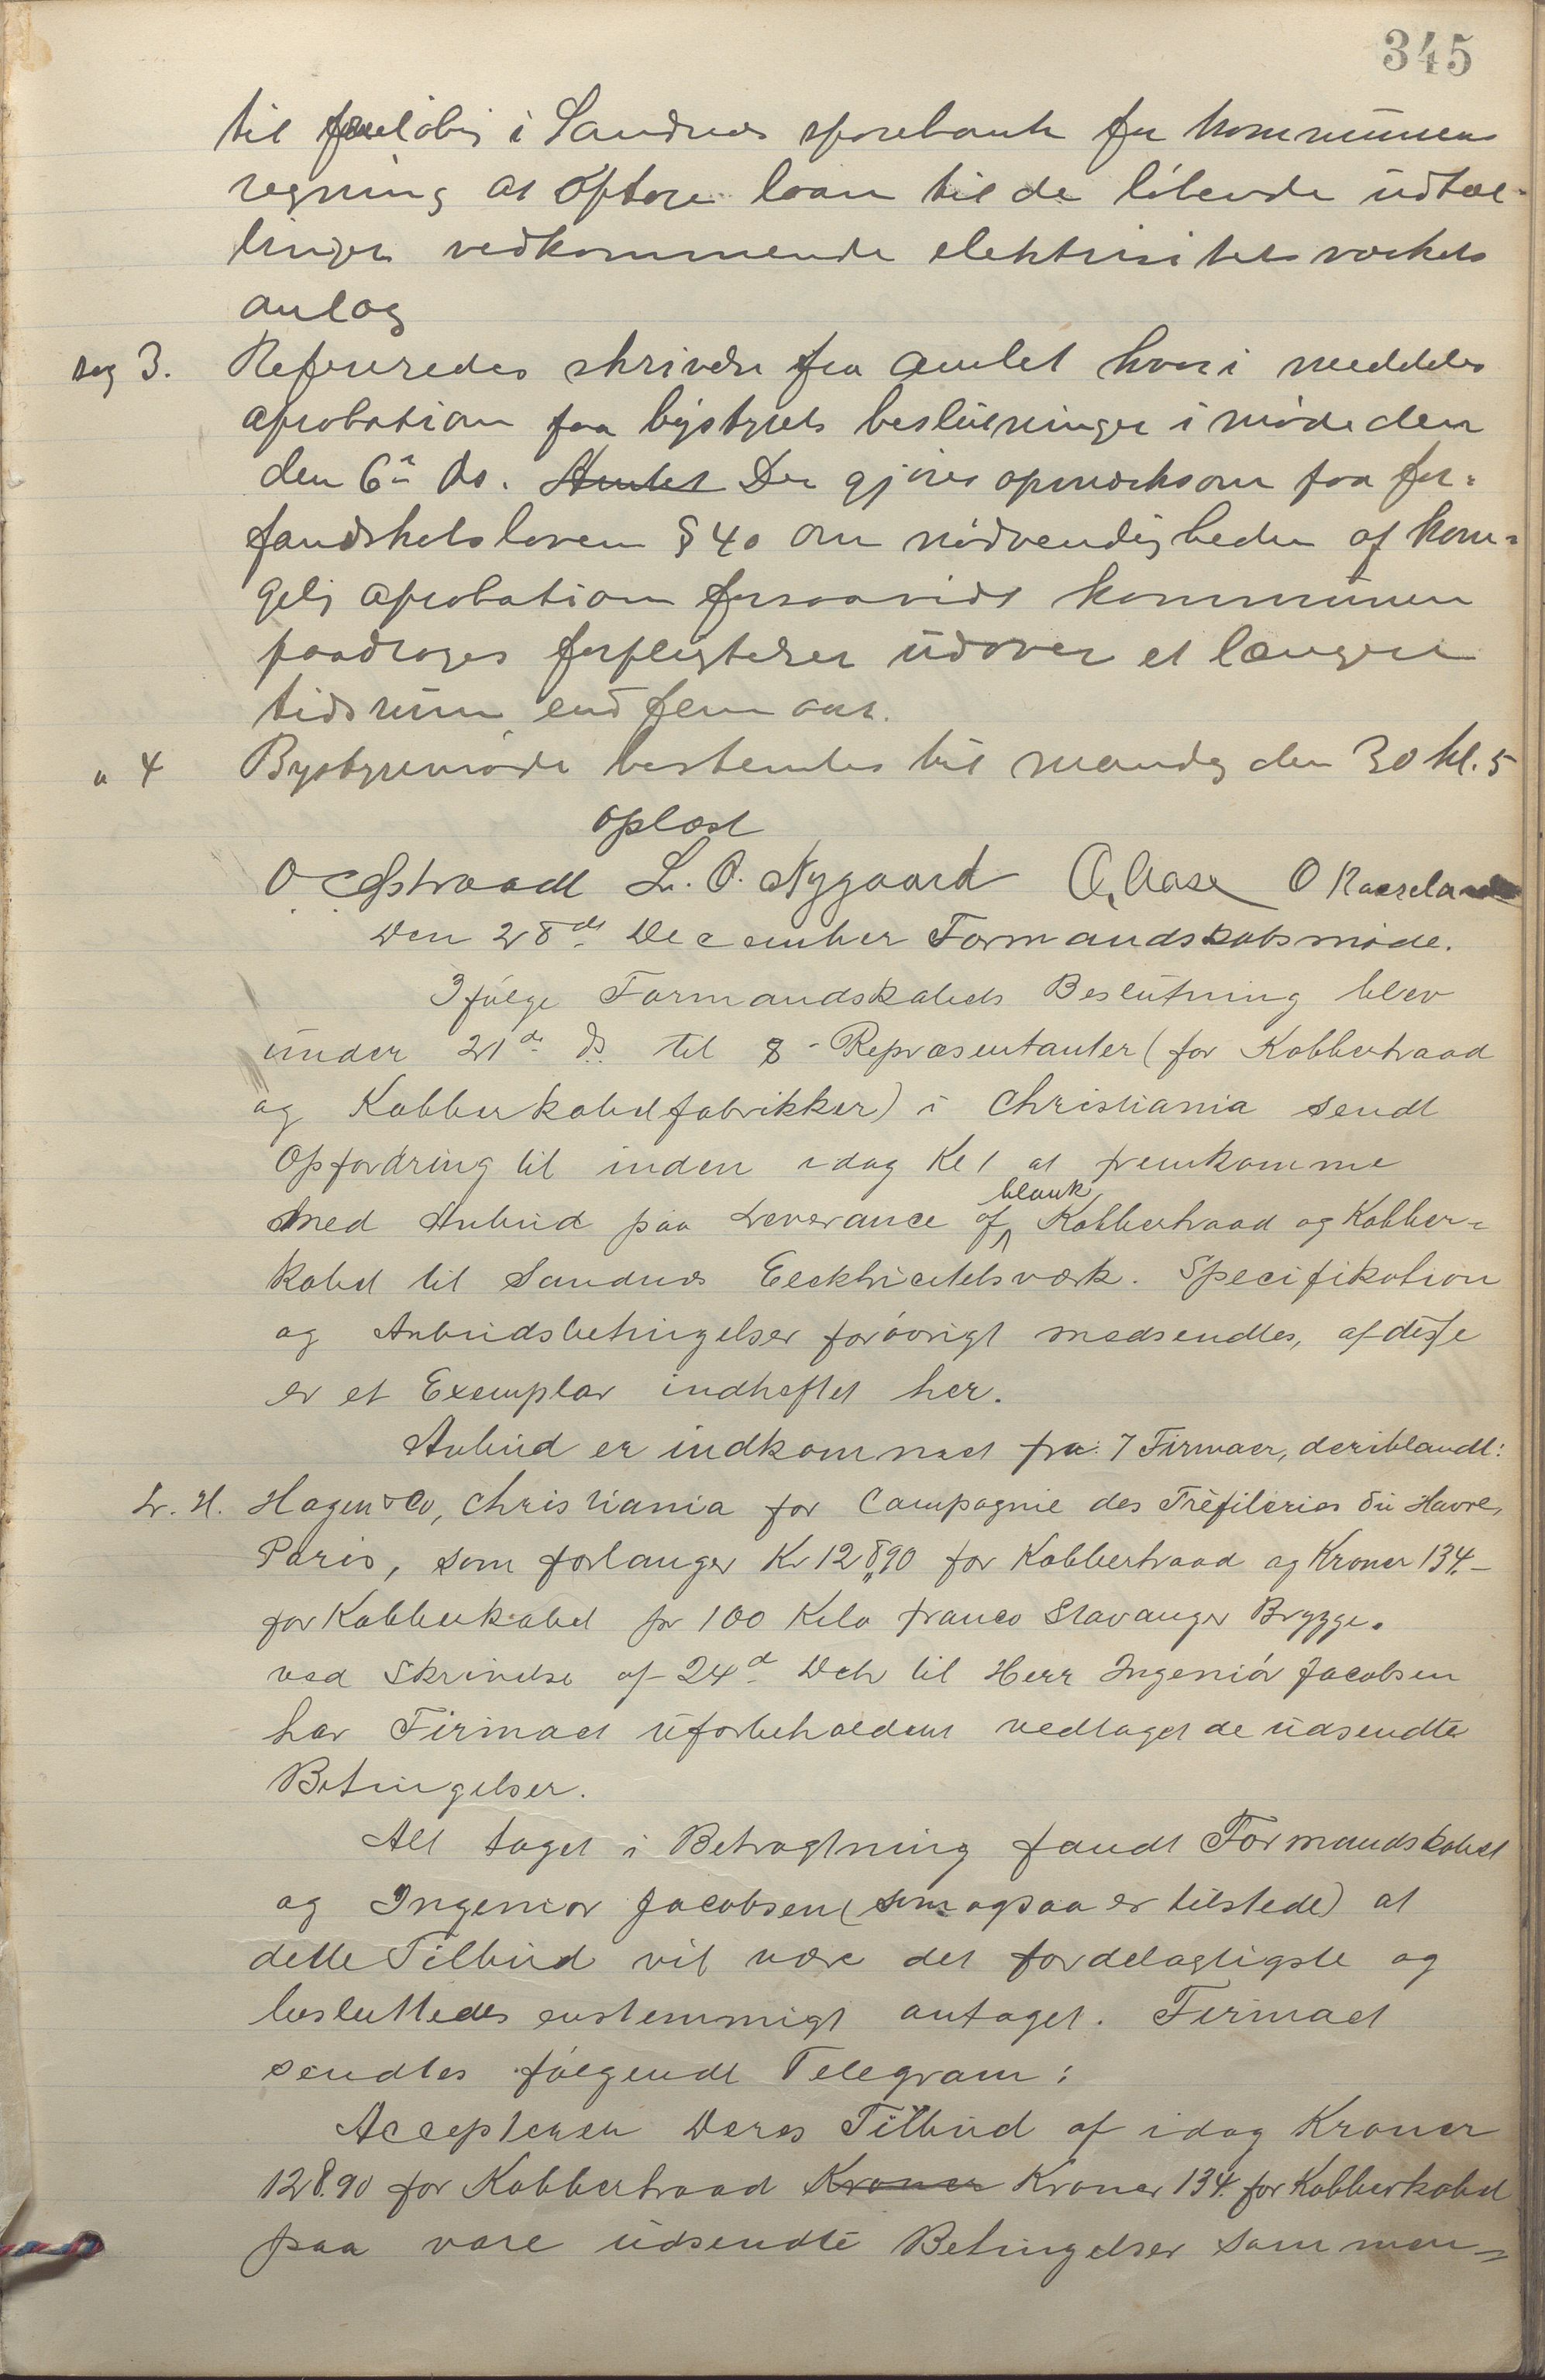 345
til foreløbig i Sandnes sparebank for kommunens
regning at optage laan til de løbende udtæl-
linger vedkommende elektrisitetsværkets
anlæg
sag 3. Refereredes skrivelse fra amtet hvori meddeles
aprobation paa bystyrets beslutninger i møde den
den 6te ds. Amtet Der gjøres opmærksom paa for-
fandskabsloven § 40 om nødvendigheden af kon-
gelig aprobation forsaavidt kommunen
paadrages forpligtelser udover et længere
tidsrum end fem aar.
" 4 Bystyremøde bestemtes til mandag den 30 kl. 5
oplæst
L. O. Nygaard O. Aase O Kaareland
Den 28de December Formandskabsmøde.
Ifølge Formandskabets Beslutning blev
under 21de ds. til 8 Repræsentanter (for Kobbertraad
og Kobberkabelfabrikker) i Christiania sendt
Opfordring til inden idag Kl 1 at fremkomme
med Anbud paa Leverance af blank Kobbertraad og Kobber-
kabel til Sandnæs Elecktricitetsværk. Specifikation
og Anbudsbetingelser forøvrigt medsendtes, af disse
er et Exemplar indheftet her.
Anbud er indkommet fra 7 Firmaer, deriblandt:
L. H. Hagen & Co, Christiania for Compagnie des Tréfileries du Havre,
Paris, som forlanger Kr 128,90 for Kobbertraad og Kroner 134.-
for Kobberkabel pr 100 Kilo franco Stavanger Brygge.
ved Skrivelse af 24d Dcbr til Herr Ingeniør Jacobsen
har Firmaet uforbeholdent vedtaget de udsendte
Betingelser.
Alt taget i Betragtning fandt Formandskabet
og Ingeniør Jacobsen (som ogsaa er tilstede) at
dette Tilbud vil være det fordelagtigste og
besluttedes enstemmigt antaget. Firmaet
sendtes følgende Telegram:
Accepterer Deres Tilbud af idag Kroner
128.90 for Kobbertraad Kroner Kroner 134. for Kobberkabel
paa vore udsendte Betingelser sammen-